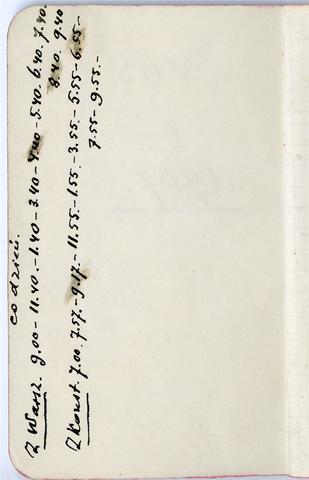 co dzień.
Z Warsz. 9.00 - 11.40. - 1.40 - 3.40 - 4.40 - 5.40. 6.40. 7.40.
8.40. 9.40
Z Konst. 7.00. 7.57. - 9.17. - 11.55. - 1.55. - 3.55. - 5.55 - 6.55. -
7.55 - 9.55. -